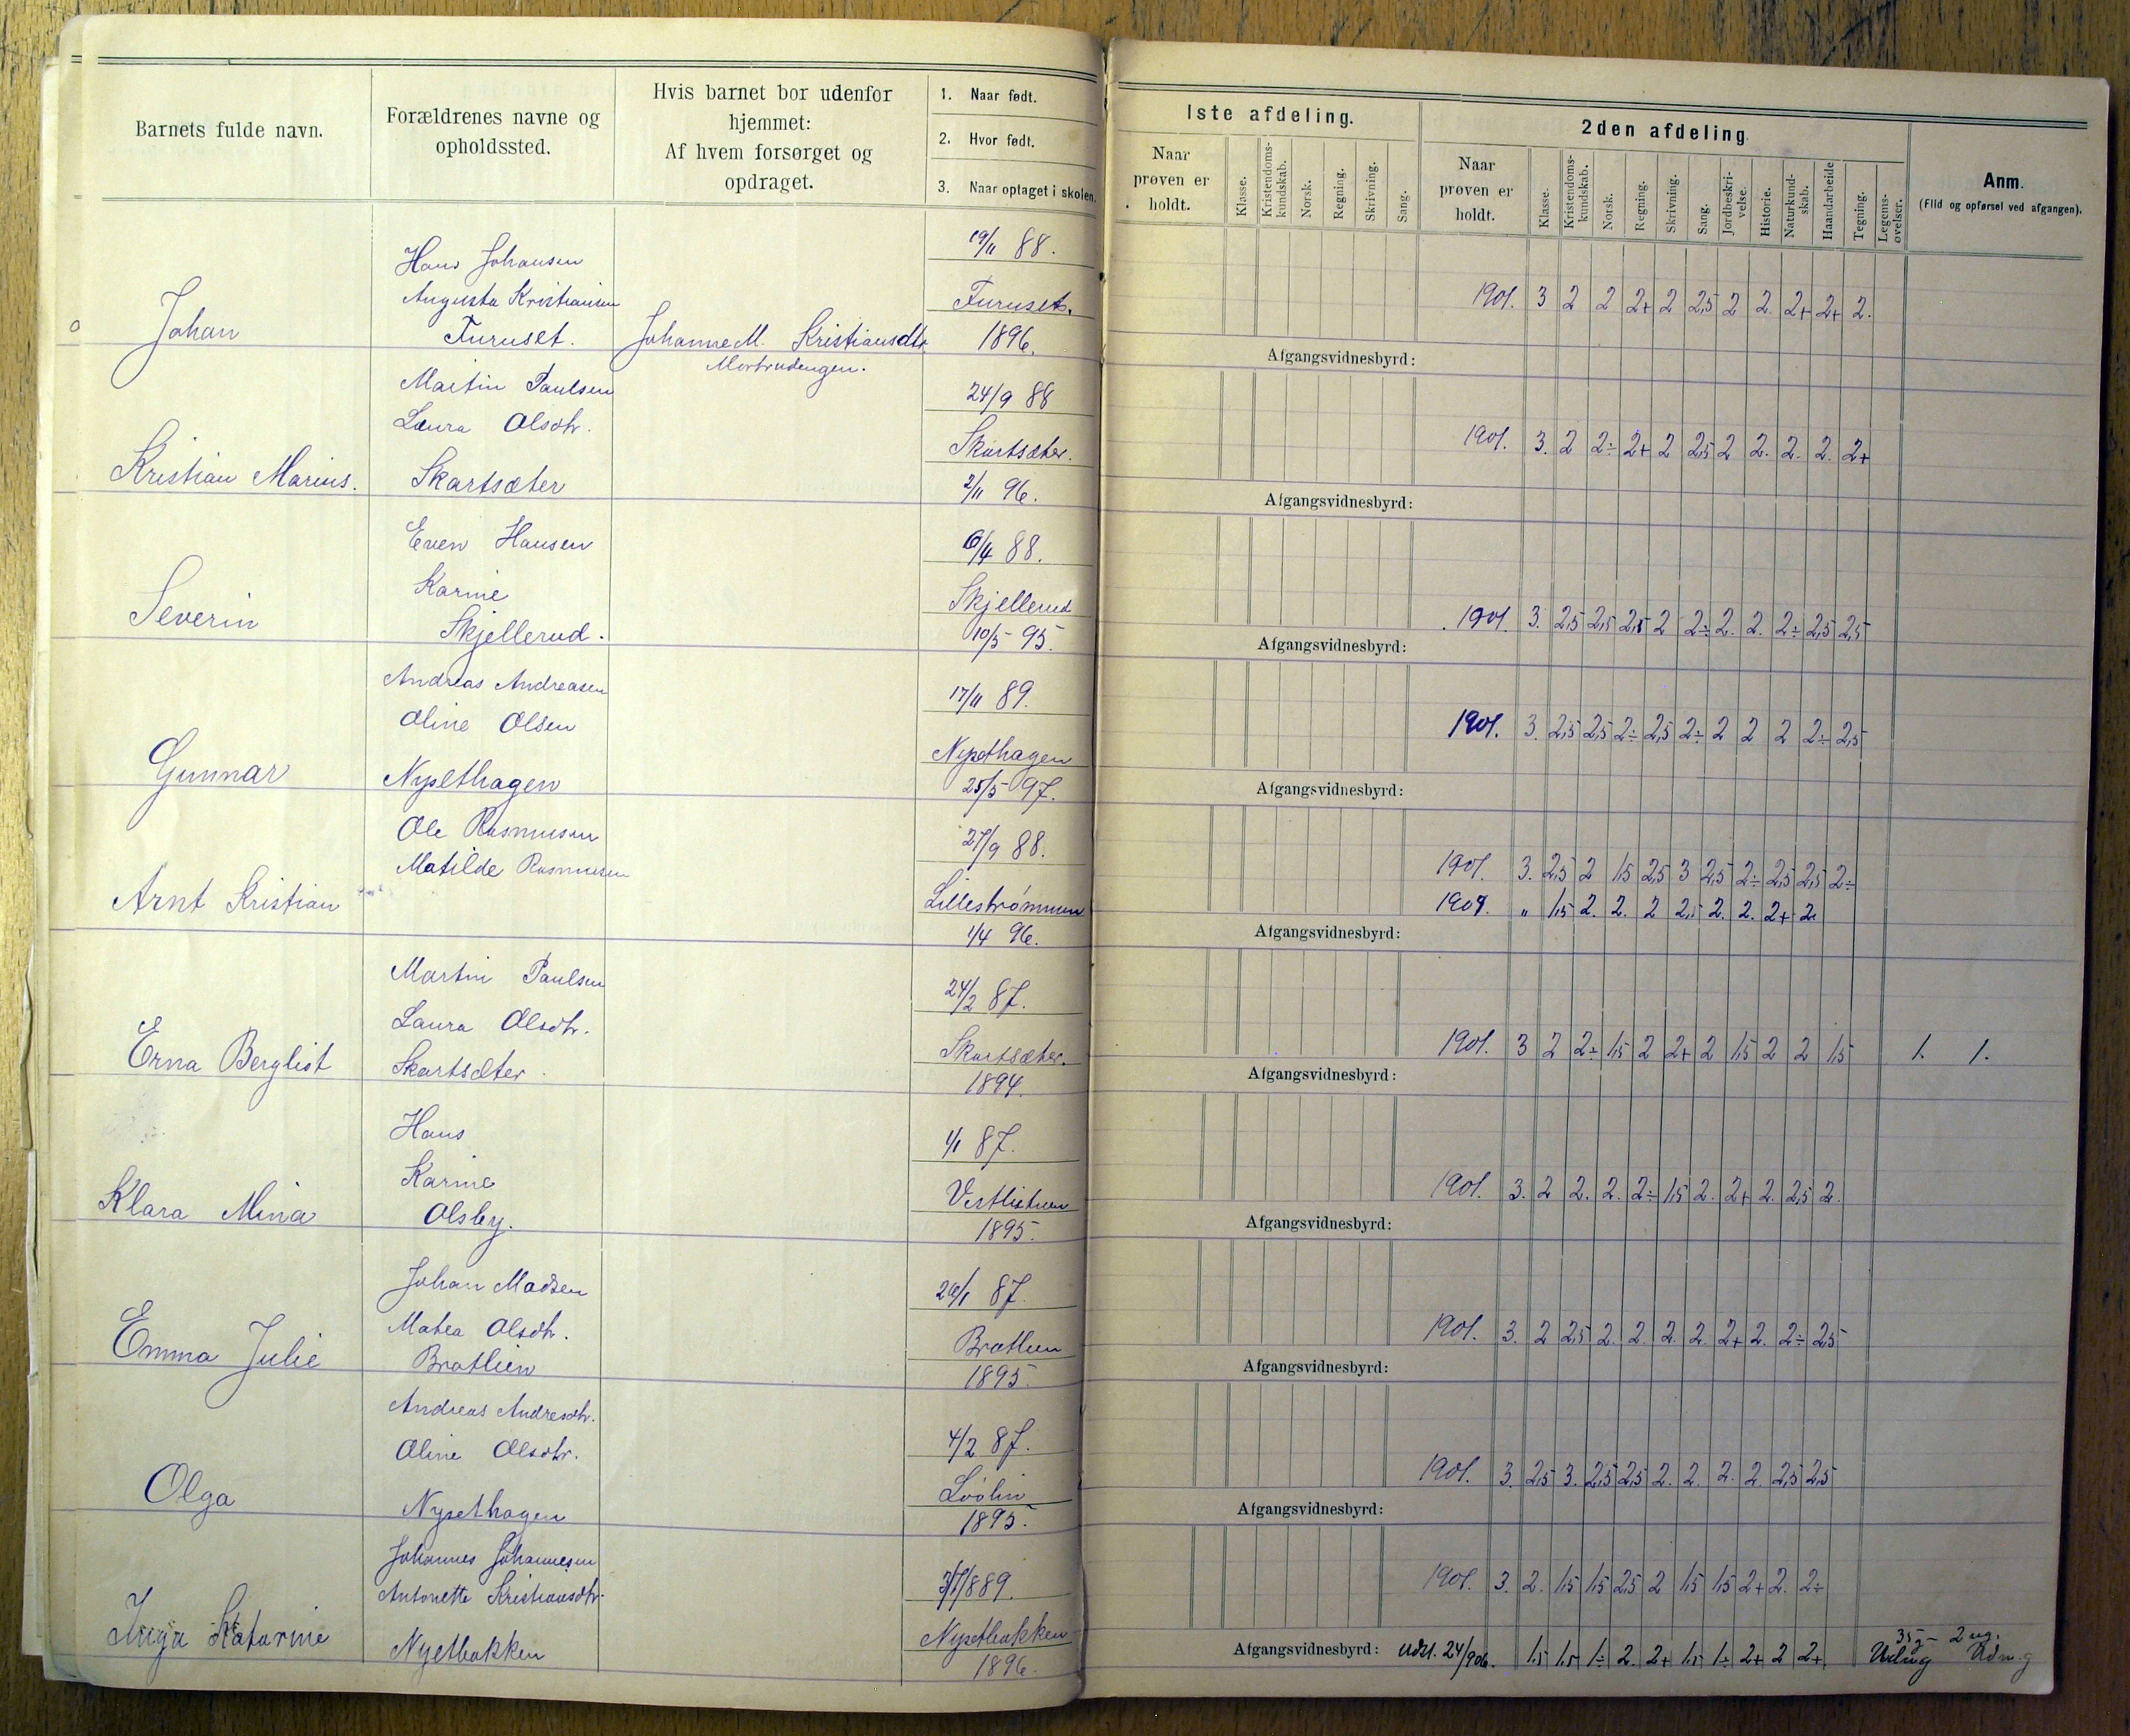 Barnets fulde navn.
Forældrenes navne og
opholdssted.
Hvis barnet bor udenfor
hjemmet:
Af hvem forsørget og
opdraget.
1. Naar født.
2. Hvor født.
3. Naar optaget i skolen.
1ste afdeling.
Naar
prøven er
holdt.
Klasse.
Kristendoms-
kundskab.
Norsk.
Regning.
Skrivning.
Sang.
2den afdeling.
Naar
prøven er
holdt.
Klasse.
Kristendoms-
kundskab.
Norsk.
Regning.
Skrivning.
Sang.
Jordbeskri-
velse.
Historie.
Naturkund-
skab.
Haandarbeide
Tegning.
Legems-
øvelser.
Anm.
(Flid og opførsel ved afgangen).
Johan
Hans Johansen
Augusta Kristiansen
Furuset.
Johanne M. Kristiansdtr
Mortvedengen.
19/11 88.
Furuset.
1896.
1901. 3 2 2 2+ 2 2,5 2 2. 2+ 2+ 2.
Afgangsvidnesbyrd:
Kristian Marius.
Martin Paulsen
Laura Olsdtr.
Skartsæter
24/9 88
Skartsæter.
2/11 96.
1901. 3. 2 2÷ 2+ 2 2,5 2 2. 2. 2. 2+
Afgangsvidnesbyrd:
Severin
Even Hansen
Karine
Skjellerud.
6/4 88.
Skjellerud
10/5 95.
1901. 3. 2,5 2,5 2,5 2 2÷ 2. 2. 2÷ 2,5 2,5
Afgangsvidnesbyrd:
Gunnar
Andreas Andreasen
Oline Olsen
Nysethagen
17/11 89.
Nysethagen
25/5 97.
1901. 3. 2,5 2,5 2÷ 2,5 2÷ 2 2 2 2÷ 2,5
Afgangsvidnesbyrd:
Arnt Kristian
Ole Rasmusen
Matilde Rasmusen
27/9 88.
Lillestrømmen
1/4 96.
1901. 3. 2,5 2 1,5 2,5 3 2,5 2÷ 2,5 2,5 2÷
" 1,5 2. 2. 2 2,5 2. 2. 2+ 2.
Afgangsvidnesbyrd:
Erna Berglist
Martin Paulsen
Laura Olsdtr.
Skartsæter.
24/2 87.
Skartsæter.
1894.
1901. 3 2 2÷ 1,5 2 2+ 2 1,5 2 2 1,5 1. 1.
Afgangsvidnesbyrd:
Klara Mina
Hans
Karine
Olsby.
1/1 87.
1895.
1901. 3. 2 2. 2. 2÷ 1,5 2. 2+ 2. 2,5 2.
Afgangsvidnesbyrd:
Emma Julie
Johan Madsen
Matea Olsdtr.
Bratlien
Bratlien
1895.
1901. 3. 2 2,5 2. 2. 2. 2. 2+ 2. 2÷ 2,5
Afgangsvidnesbyrd:
Olga
Andreas Andresdtr.
Oline Olsdtr.
Nysethagen
4/2 87.
1895.
1901. 3. 2,5 3. 2,5 2,5 2. 2. 2. 2. 2,5 2,5
Afgangsvidnesbyrd:
Inga Katarine
Johannes Johannesen
Antonette Kristiansdtr.
Nysetbakken
Nysetbakken
1896.
1901. 3. 2. 1,5 1,5 2,5 2 1,5 1,5 2+ 2. 2÷
Afgangsvidnesbyrd: udsl. 24/906. 1,5 1,5 1÷ 2 2+ 1,5 1÷ 2+ 2 2+